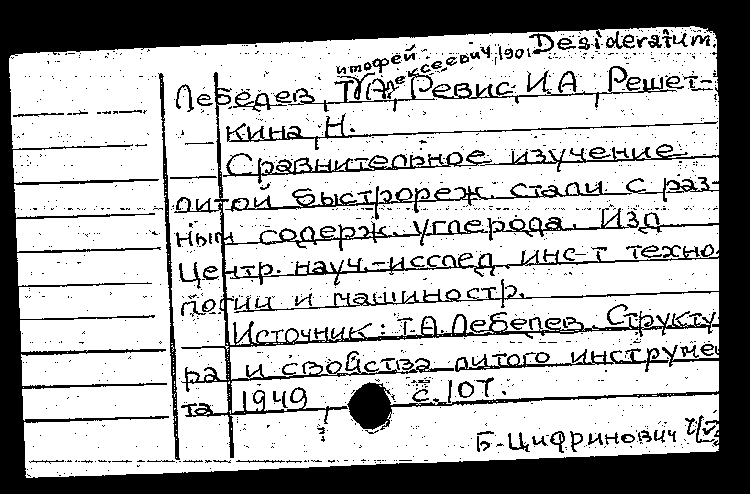 Desideratum
итофей лексеевич, 1901
Лебедев, Т.А., Ревис, И.А., Решет-
кина, Н.
Сравнительное изучение
литой быстрореж. стали с раз-
ным содерж. углерода. Изд
Центр. науч.-исслед. инс-т техно-
логии и машиностр.
Источник: Т.А. Лебедев. Структу-
ра и свойства литого инструмен
та 1949, с. 107.
Б-Цифринович